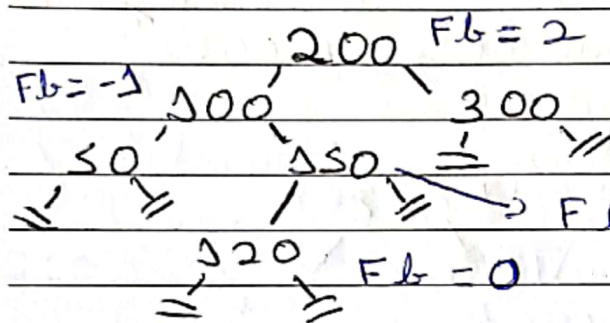 200 Fb = 2
Fb = -1 100 300
50 150
F
120 Fb = 0